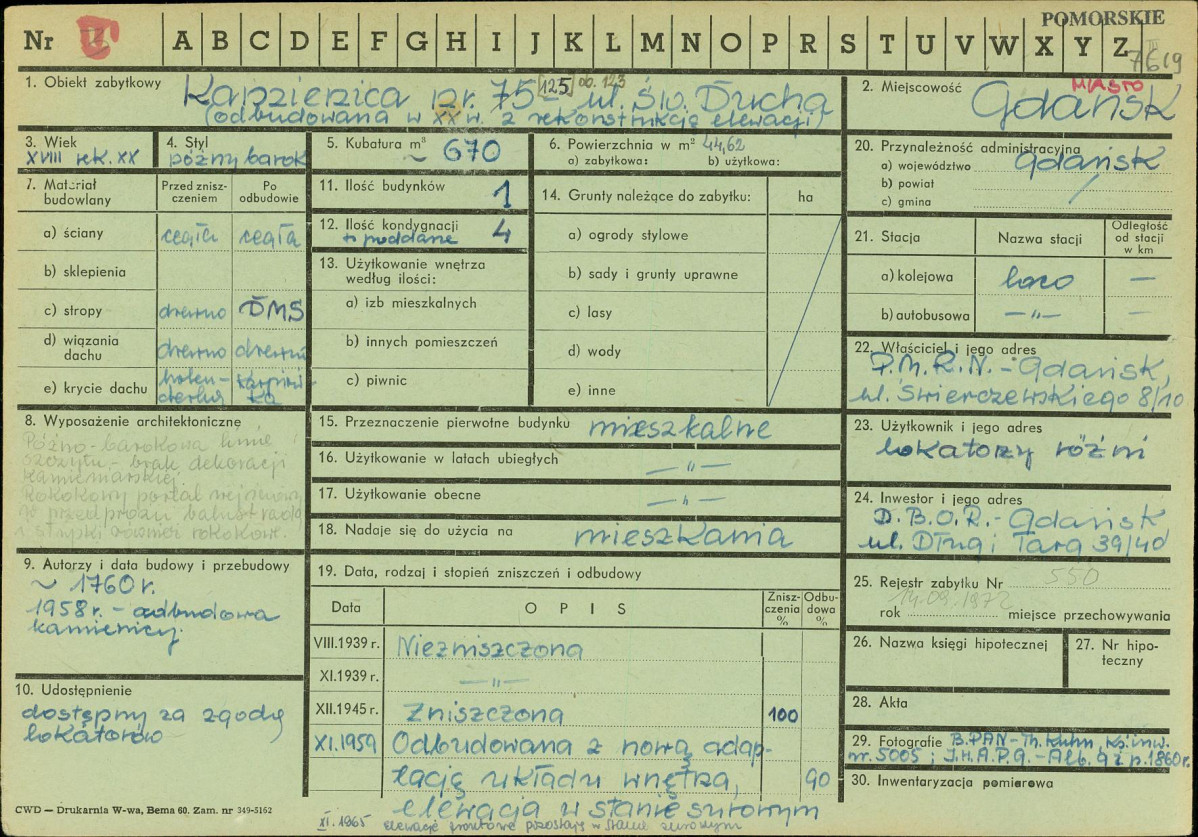 POMORSKIE
Nr II A B C D E F G H I J K L M N O P R S T U V W X Y Z
7619
1. Obiekt zabytkowy Kamienica nr. 75 [125] ob. 123 - ul. Św. Ducha
(odbudowana w XX w. z rekonstrukcją elewacji)
2. Miejscowość MIASTO
Gdańsk
3. Wiek
XVIII rek. XX
4. Styl
późny barok
5. Kubatura m³
~ 670
6. Powierzchnia w m² 44,62
a) zabytkowa: b) użytkowa:
7. Materiał budowlany
Przed zniszczeniem
Po odbudowie
a) ściany cegła cegła
b) sklepienia
c) stropy drewno DMS
d) wiązania dachu drewno drewno
e) krycie dachu holen-
derka
karpiów
ka
8. Wyposażenie architektoniczne
Późno-barokowa linie
szczytu - brak dekoracji
kamieniarskiej.
Rokokowy portal
przedprożu balustrada
słupki również rokokowe.
9. Autorzy i data budowy i przebudowy
~ 1760 r.
1958 r. - odbudowa
kamienicy.
10. Udostępnienie
dostępny za zgodą
lokatorów
11. Ilość budynków 1
12. Ilość kondygnacji
+ poddasze 4
13. Użytkowanie wnętrza
według ilości:
a) izb mieszkalnych
b) innych pomieszczeń
c) piwnic
14. Grunty należące do zabytku: ha
a) ogrody stylowe
b) sady i grunty uprawne
c) lasy
d) wody
e) inne
15. Przeznaczenie pierwotne budynku mieszkalne
16. Użytkowanie w latach ubiegłych — „ —
17. Użytkowanie obecne — „ —
18. Nadaje się do użycia na mieszkania
19. Data, rodzaj i stopień zniszczeń i odbudowy
Data OPIS Zniszczenia % Odbudowa %
VIII.1939 r. Niezniszczona
XI.1939 r. — „ —
XII.1945 r. Zniszczona 100
XI.1959 Odbudowana z nową adap-
tacją układu wnętrza, 90
elewacja w stanie surowym
XI.1965 elewacje frontowe pozostają w stanie surowym
20. Przynależność administracyjna
a) województwo Gdańsk
b) powiat /
c) gmina
21. Stacja Nazwa stacji Odległość od stacji w km
a) kolejowa loco —
b) autobusowa — „ — —
22. Właściciel i jego adres
P.M.R.N. - Gdańsk,
ul. Świerczewskiego 8/10
23. Użytkownik i jego adres
lokatorzy różni
24. Inwestor i jego adres
D.B.O.R. - Gdańsk
ul. Długi Targ 39/40
25. Rejestr zabytku Nr 550
rok 14.09.1972 miejsce przechowywania
26. Nazwa księgi hipotecznej
27. Nr hipoteczny
28. Akta
29. Fotografie B.PAN - Th. Kuhn, Ks. inw.
nr. 5005; I.H.A.P.G. - Alb. 9z p.1860r.
30. Inwentaryzacja pomiarowa
CWD — Drukarnia W-wa, Bema 60. Zam. nr 349-5162